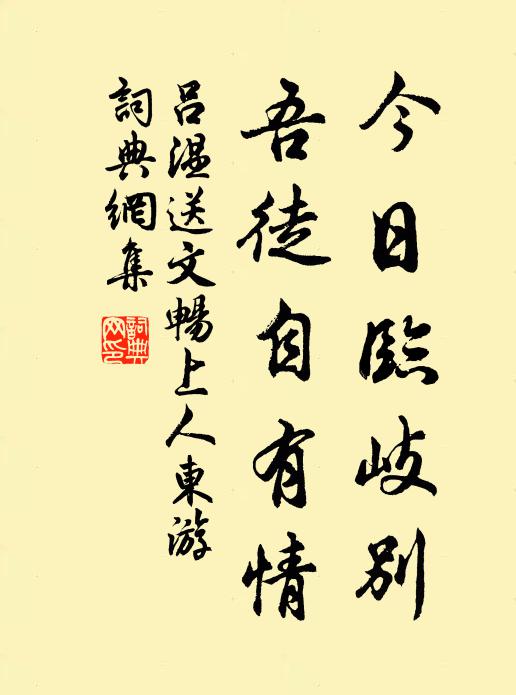 今日臨歧別
吾徒自有情
呂溫送文暢上人東游
詞典網集
詞典网印